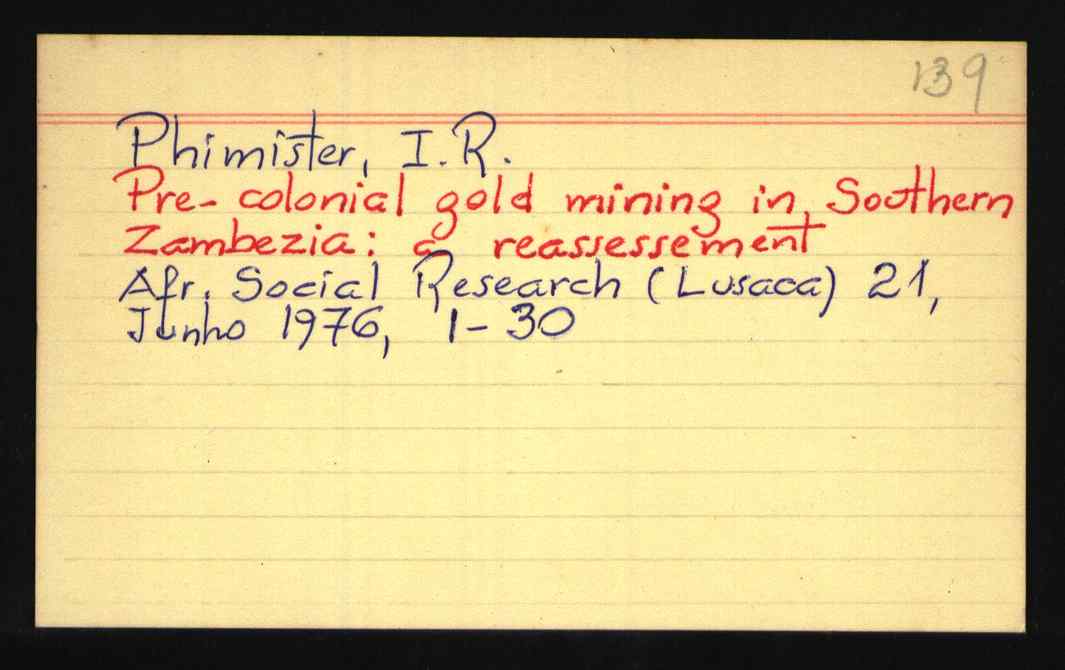 139
Phimister, I.R.
Pre-colonial gold mining in Southern
Zambezia: a reassessement
Afr. Social Research (Lusaca) 21,
Junho 1976, 1-30